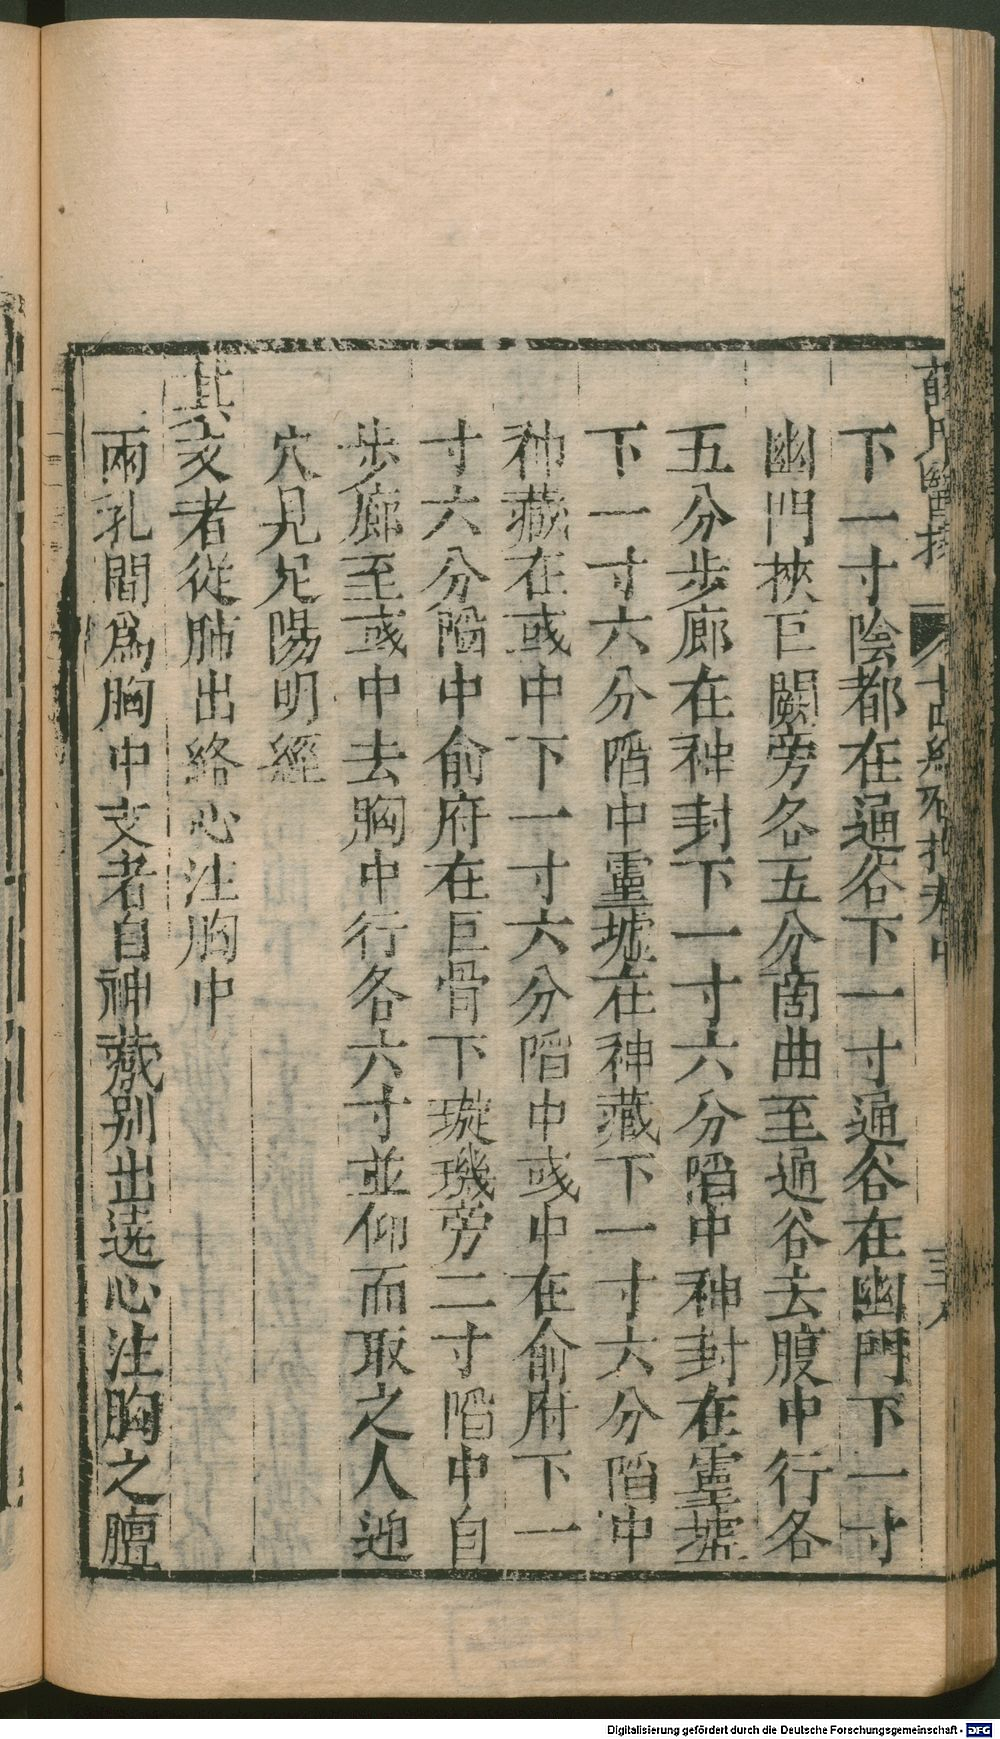 薛氏醫按 十四經發揮卷中 三八
下一寸陰都在通谷下一寸通谷在幽門下一寸
幽門挾巨闕旁各五分啇曲至通谷去腹中行各
五分步廊在神封下一寸六分䧟中神封在靈墟
下一寸六分䧟中靈墟在神藏下一寸六分䧟中
神藏在彧中下一寸六分䧟中彧中在俞府下一
寸六分䧟中俞府在巨骨下璇璣旁二寸䧟中自
步廊至彧中去胸中行各六寸並仰而取之人迎
穴見足陽明經
其支者從肺出絡心注胸中
兩乳間爲胸中支者自神藏别出遶心注胸之膻
Digitalisierung gefördert durch die Deutsche Forschungsgemeinschaft - DFG